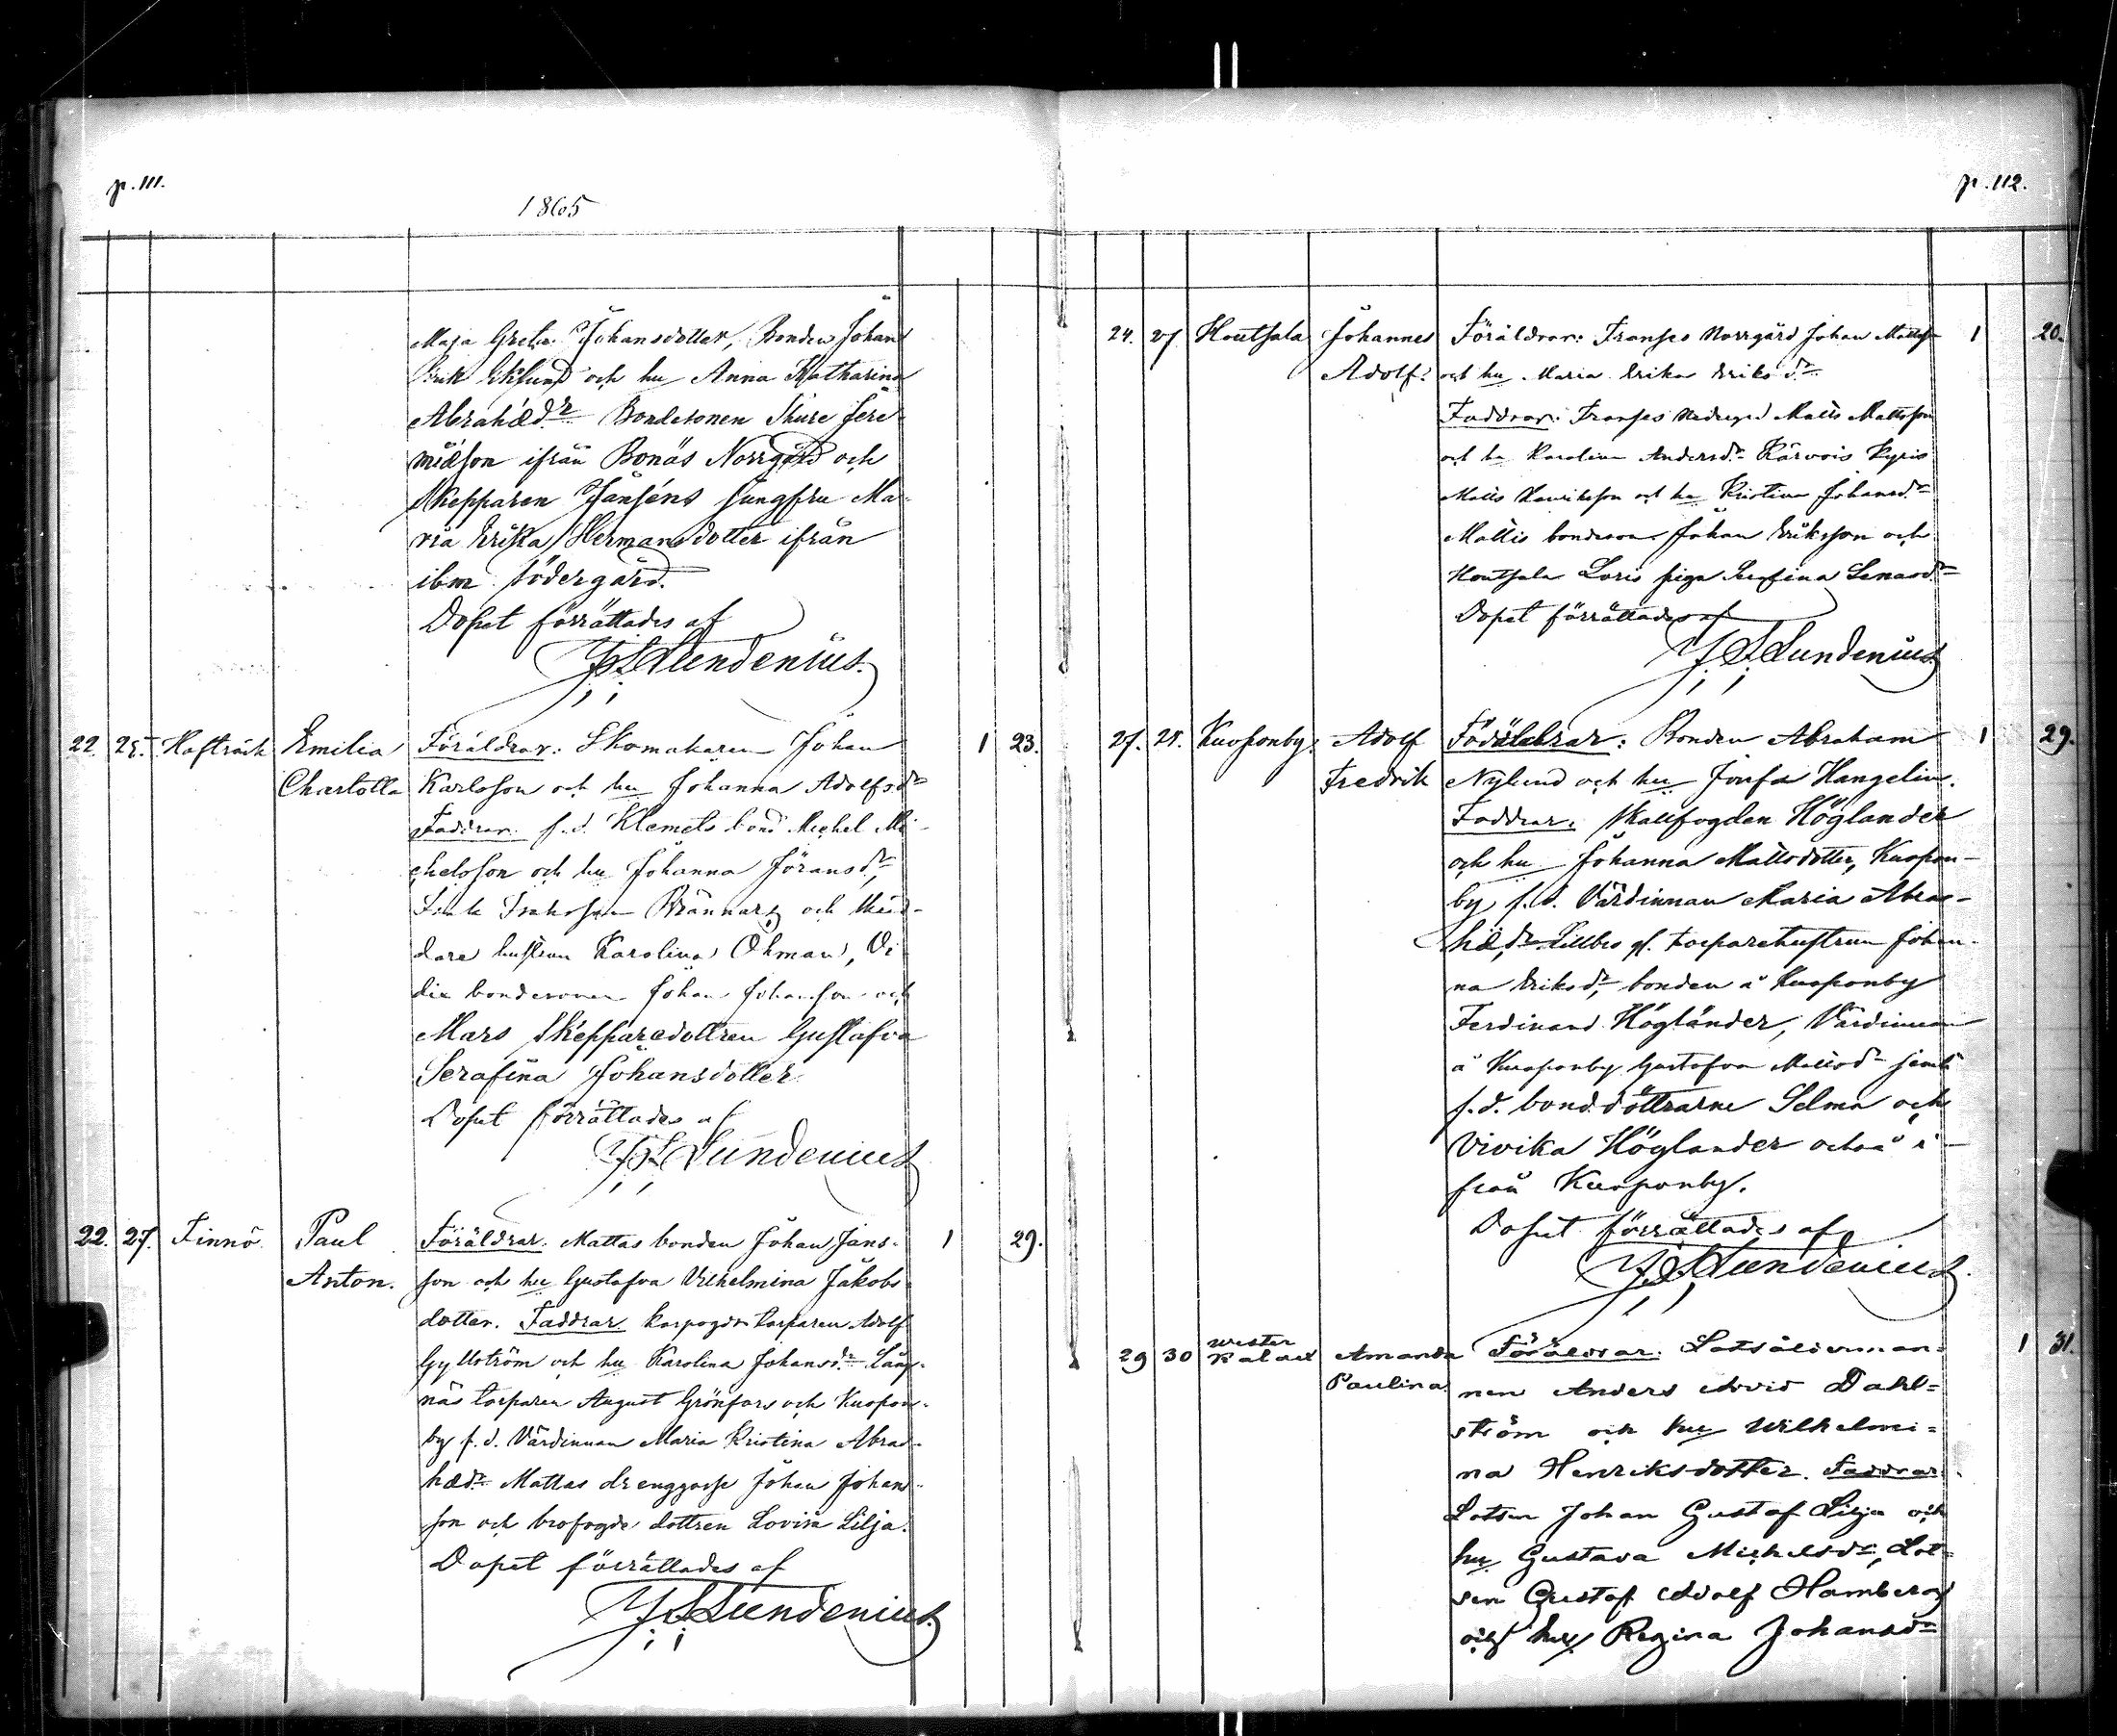 p. 111.
1865
Maja Greta Johansdotter, Bonden Johan
Erik Eklund och hu Anna Katharina
Abrahæd:r Bondesonen Thure Jere-
miæson ifrån Bonäs Norrgård och
Skepparen Janséns Jungfru Ma-
ria Erika Hermansdotter ifrån
ibm Södergård.
Dopet förrättades af
J. Lundenius.
22. 25. Hafträsk Emilia Föräldrar: Skomakaren Johan 1 23.
Charlotta Karlsson och hu Johanna Adolfsd:r
Faddrar. f.d. Klemets bond Michel Mi-
chelsson och hu Johanna Göransd:r,
Brännars och
dare hustrun Karolina Öhman,
bondesonen Johan Johansson och
Mars Skepparedottren Gustafva
Serafina Johansdotter.
Dopet förrättades af
J. Lundenius
22. 27. Finnö Paul Föräldrar. Mattas bonden Johan Jans- 1 29.
Anton. son och hu Gustafva Vilhelmina Jakobs
dotter. Faddrar. torparen Adolf
Gyllström och hu Karolina Johansd:r Lång-
näs torparen August Grönfors och Kuopon-
by f.d. Värdinnan Maria Kristina Abra-
hæd:r Mattas drenggosse Johan Johans-
son och brofogde dottren Lovisa Lilja.
Dopet förrättades af
J. Lundenius.
p. 112.
24. 27. Houtsala Johannes Föräldrar: Norrgård Johan Mattsson 1 20.
Adolf. och hu Maria Erika Eriksd:r
Faddrar: Matts Mattsson
och hu Karolina Andersd:r Kärvois
Matts Henriksson och hu Kristina Johansd:r
Mattis bondeson Johan Eriksson och
Houtsala piga
Dopet förrättades af
J. Lundenius
27. 28. Kuoponby Adolf Föräldrar: Bonden Abraham 1 29.
Fredrik Nylund och hu Hangelin.
Faddrar: Skallfogden Höglander
och hu Johanna Mattsdotter, Kuopon-
by f.d. Värdinnan Maria Abra-
hæd:r, Lillbro torparehustrun Johan-
na Eriksd:r, bonden å Kuoponby
Ferdinand Högländer, Värdinnan
å Kuoponby Gustafva Mattsd:r samt
f.d. bond döttrarne Selma och
Vivika Höglander också i-
från Kuoponby.
Dopet förrättades af
J. Lundenius.
29 30 Wester Kalax Amanda Föräldrar: Lotsålderman- 1 31.
Paulina nen Anders Arvid Dahl=
ström och hu Wilhelmi=
na Henriksdotter. Faddrar:
Lotsen Johan Gustaf Lilja och
hu Gustava Michelsd:r, Lot=
sen Gustaf Adolf Hamberg
och hu Regina Johansd:r